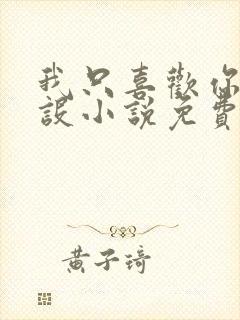 我只喜歡你
設小說免費
黃子琦